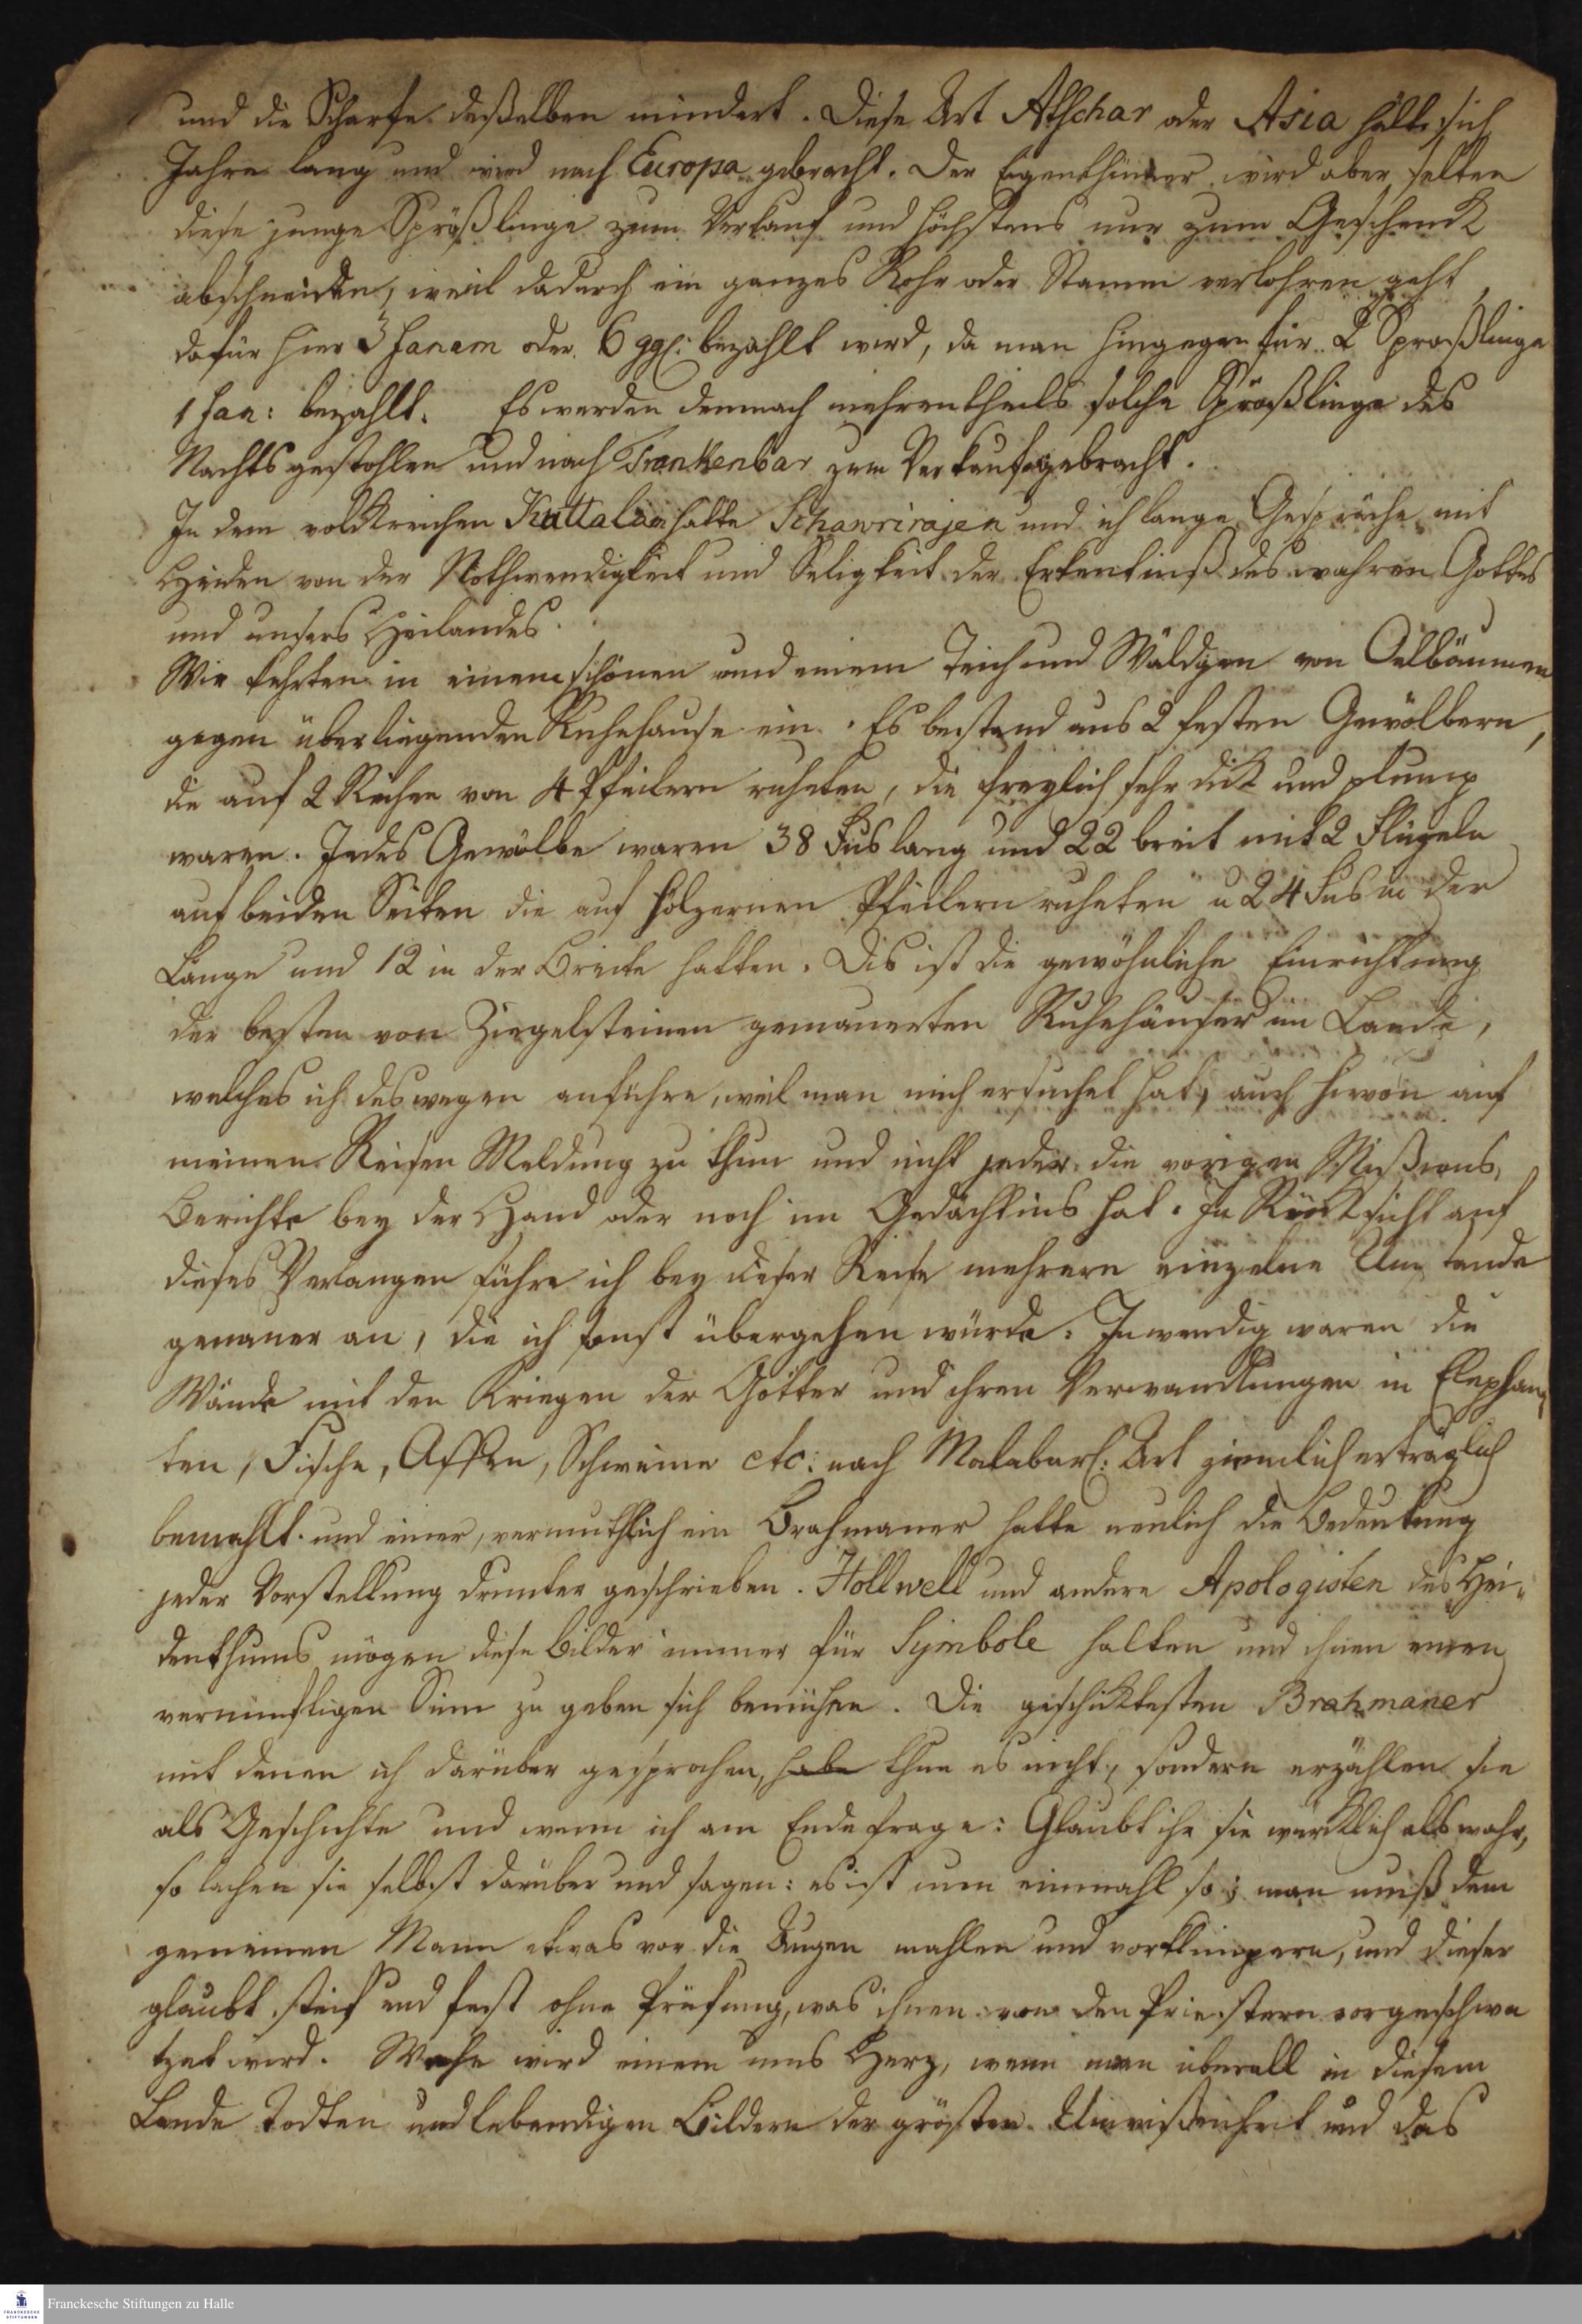 und die Scharfe deßelben mindert. Diese Art Atschar oder Asia hält sich
Jahre lang und wird nach Europa gebracht. Der Eigenthümer wird aber selten
diese junge Sprößlinge zum Verkauf und höchstens nur zum Geschenk
abschneiden, weil dadurch ein ganzes Rohr oder Stamm verlohren geht,
dafür hier 3 fanam oder 6 ggl: bezahlt wird, da man hingegen für 2 Sproßlinge
1 fan: bezahlt. Es werden demnach mehrentheils solche Sprößlinge des
Nachts gestohlen und nach Trankenbar zum Verkauf gebracht.
In dem volckreichen Kuttalam hatte Schawrirajen und ich lange Gespräche mit
Heiden von der Nothwendigkeit und Seligkeit der Erkentniß des wahren Gottes
und unsers Heilandes.
Wir kehrten in einem schönen und einem Teich und Wäldgen von Oelbäumen
gegen überliegenden Ruhehause ein. Es bestand aus 2 festen Gewölbern,
die auf 2 Reihen von 4 Pfeilern ruheten, die freylich sehr dick und plump
waren. Jedes Gewölbe waren 38 Fus lang und 22 breit mit 2 Flügeln
auf beiden Seiten die auf holzernen Pfeilern ruheten u 24 Fus in der
Länge und 12 in der Breite hatten. Dis ist die gewöhnliche Einrichtung
der besten von Ziegelsteinen gemauerten Ruhehäuser im Lande,
welches ich deswegen anführe, weil man mich ersuchet hat, auch hievon auf
meinen Reisen Meldung zu thun und nicht jeder die vorigen Mißions,
Berichte bey der Hand oder noch im Gedächtnis hat. In Rücksicht auf
dieses Verlangen führe ich bey dieser Reise mehrere einzelne Umstande
genauer an, die ich sonst übergehen würde. Inwendig waren die
Wände mit den Kriegen der Götter und ihren Verwandlungen in Elephan,
ten, Fische, Affen, Schweine etc: nach Malabarl: Art ziemlich erträglich
bemahlt. und einer, vermuthlich ein Brahmaner hatte neulich die Bedeutung
jeder Vorstellung drunter geschrieben. Hollwell und andere Apologisten des Hei„
denthums mögen diese Bilder immer für Symbole halten und ihnen einen
vernünftigen Sinn zu geben sich bemühen. Die geschicktesten Brahmaner
mit denen ich darüber gesprochen, habe thun es nicht, sondern erzählen sie
als Geschichte und wenn ich am Ende frage: Glaubt ihr sie würcklich als wahr,
so lachen sie selbst darüber und sagen: es ist nun einmahl so; man muß dem
gemeinen Mann etwas vor die Augen mahlen und vorklimpern, und dieser
glaubt steif und fest ohne Prüfung, was ihnen von den Priestern vorgeschwa
tzet wird. Wehe wird einem ums Herz, wenn man überall in diesem
Lande todten und lebendigen Bildern der grösten Unwißenheit und des
Franckesche Stiftungen zu Halle
FRANCKESCHE
STIFTUNGEN